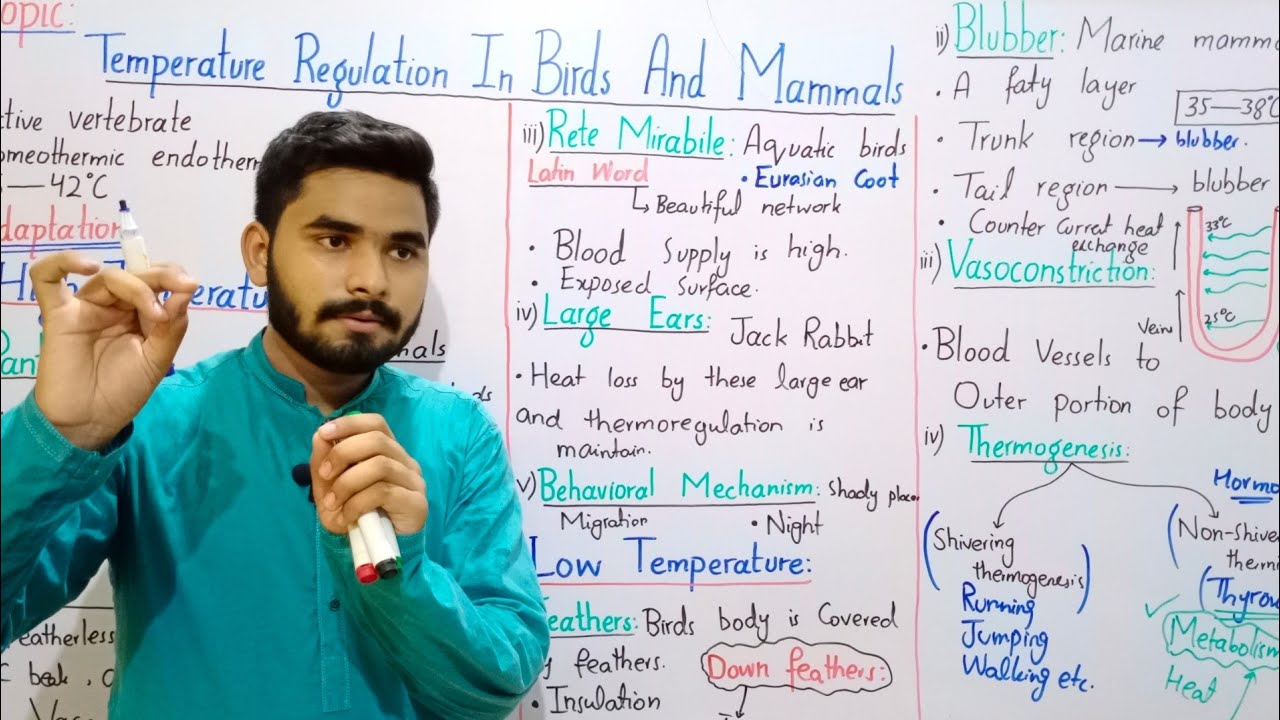 opic:
Temperature Regulation In Birds And Mammals
ctive vertebrate
omeothermic endotherm
—42°C
daptation
High Temperatu
Pant
mals
ds
eatherless
beak,
iii) Rete Mirabile: Aquatic birds
Latin Word
• Eurasian Coot
Beautiful network
• Blood Supply is high.
• Exposed Surface.
iv) Large Ears: Jack Rabbit
• Heat loss by these large ear
and thermoregulation is
maintain.
v) Behavioral Mechanism: Shady places
Migration • Night
Low Temperature:
eathers: Birds body is Covered
y feathers.
Down feathers:
• Insulation
ii) Blubber: Marine mamma
• A faty layer
35—38°C
• Trunk region → blubber.
• Tail region → blubber
• Counter Current heat
exchange
33°C
25°C
Veins
iii) Vasoconstriction:
• Blood Vessels to
Outer portion of body
iv) Thermogenesis:
Hormo
(Shivering
thermogenesis)
Running
Jumping
Walking etc.
(Non-Shive
thermo
(Thyrox
Metabolism
Heat